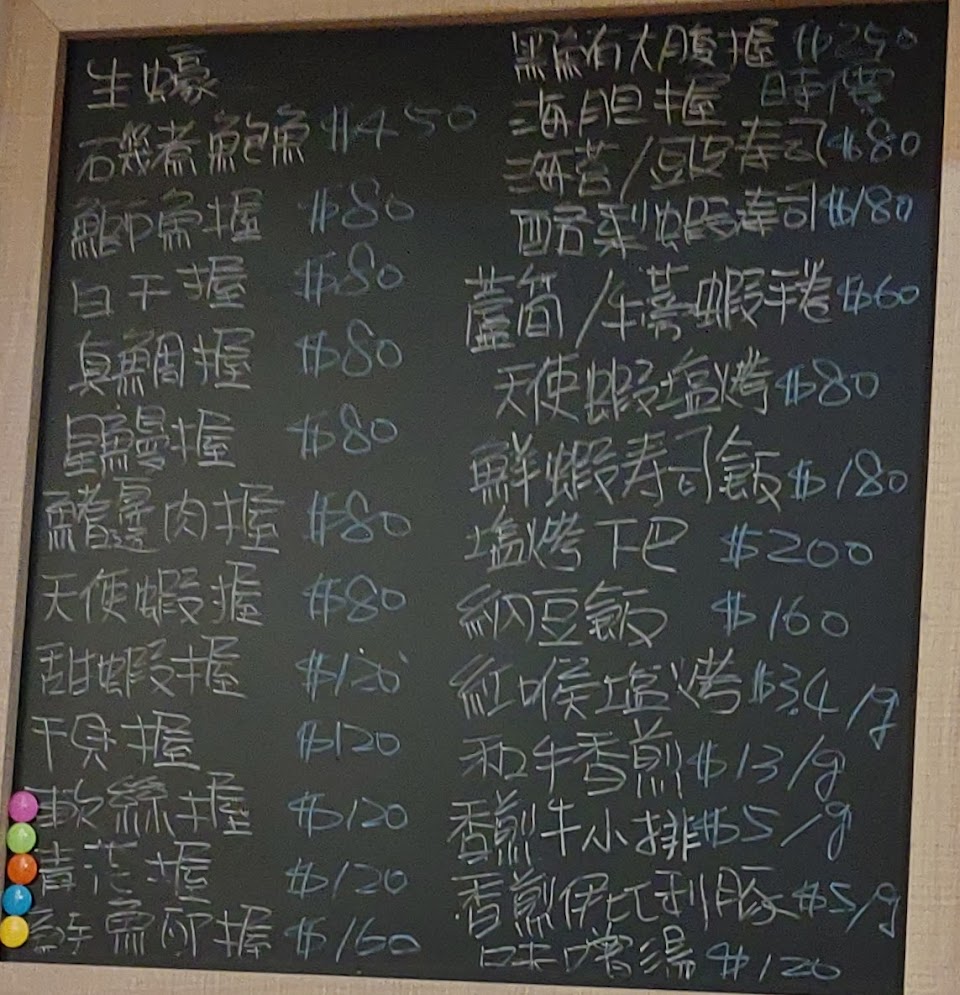 生蠔
石幾煮鮑魚 $450
鰤魚握 $80
白干握 $80
真鯛握 $80
星鰻握 $80
鰭邊肉握 $80
天使蝦握 $80
甜蝦握 $120
干貝握 $120
軟絲握 $120
青花握 $120
鮭魚卵握 $160
黑鮪大腹握 $250
海胆握 時價
海苔/豆皮寿司 $80
酪梨蝦寿司 $180
蘆筍/牛蒡蝦手卷 $60
天使蝦塩烤 $80
鮮蝦寿司飯 $180
塩烤下巴 $200
納豆飯 $160
紅喉塩烤 $3.4/g
和牛香煎 $13/g
香煎牛小排 $5/g
香煎伊比利豚 $5/g
味噌湯 $120